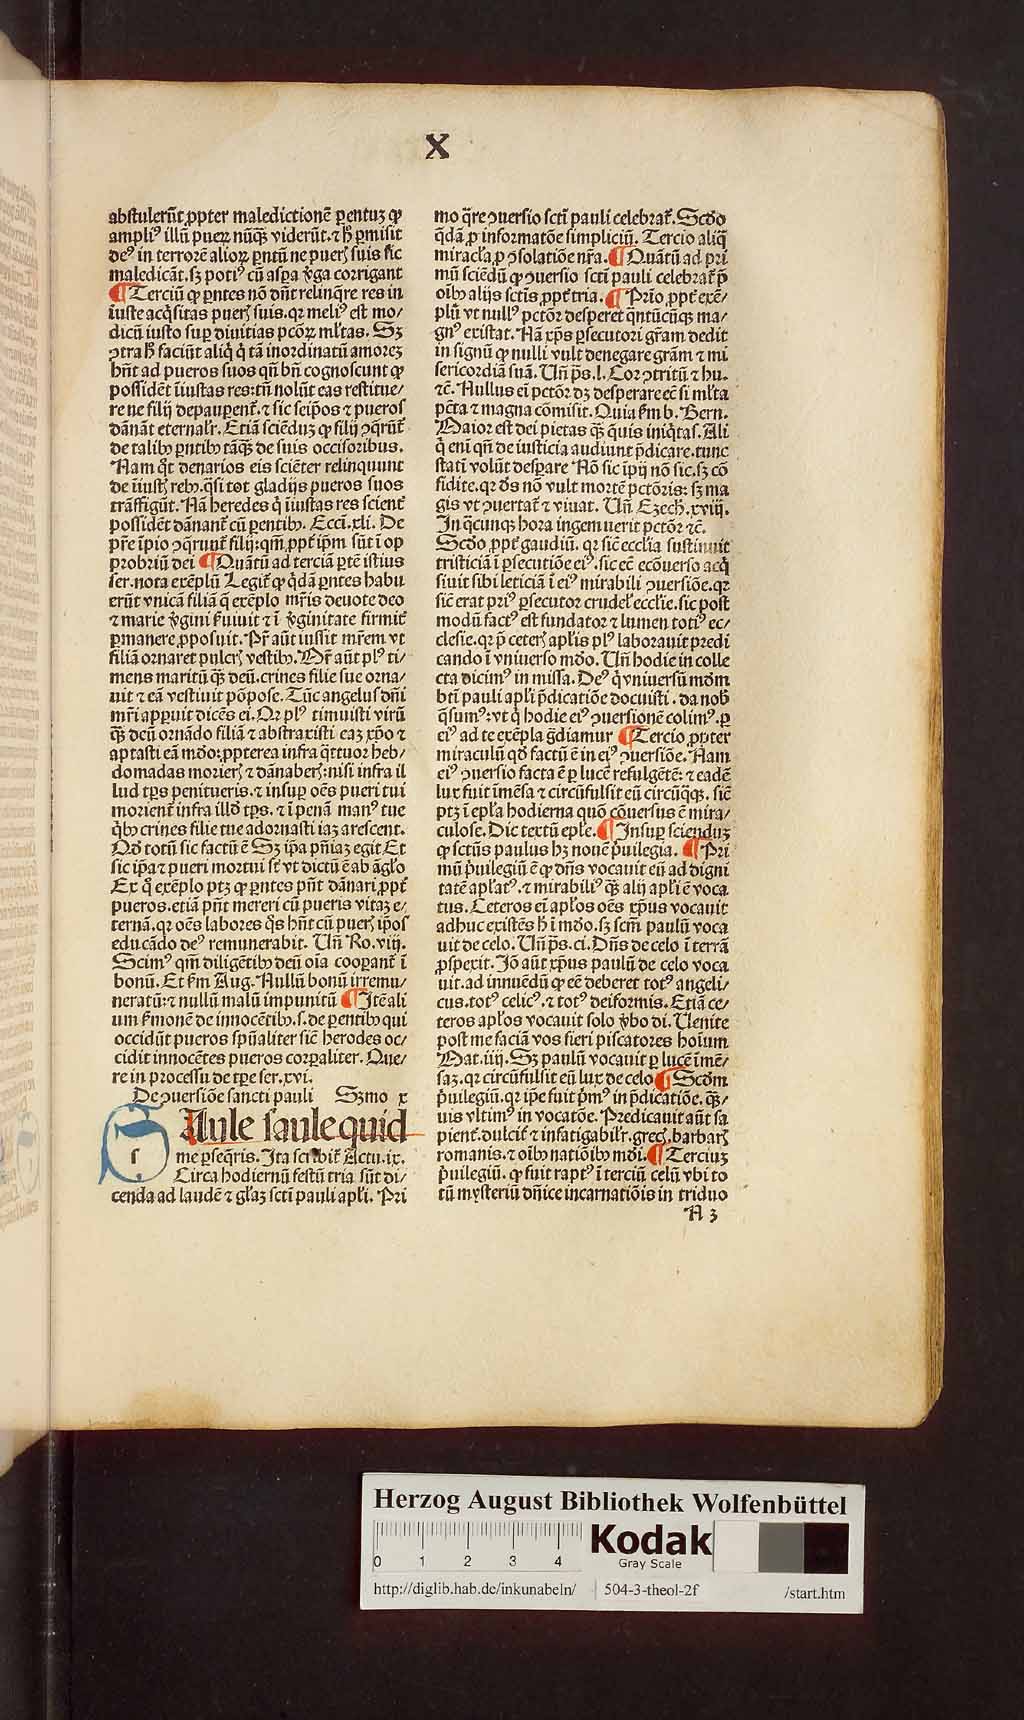 X
abstulerūt ꝓpter maledictionē ꝑentuꝫ ꝙ
ampliꝰ illū pueꝝ nūqꝫ viderūt. ⁊ hͦ ꝑmisit
deꝰ in terrorē alioꝝ ꝑntū ne pueri suis sic
maledicāt. sꝫ potiꝰ cū aspa v̓ga corrigant
¶ Terciū ꝙ ꝑntes nō dn̄t relinq̄re res in
iuste acq̓sitas pueris suis. qꝛ meliꝰ est mo/
dicū iusto suꝑ diuitias pctōꝝ ml̓tas. Sꝫ
ↄtra hͦ faciūt aliq̓ q̓ tā inordinatū amoreꝫ
hn̄t ad pueros suos qn̄ bn̄ cognoscunt ꝙ
possidēt īiustas res: tn̄ nolūt eas restitue/
re ne filij depauꝑent̄. ⁊ sic seip̄os ⁊ pueros
dānāt eternalr̄. Etiā sciēduꝫ ꝙ filij ↄq̄rūt̄
de talibꝰ ꝑntibꝰ tāqꝫ de suis occisoribus.
Nam qͦt denarios eis sciēter relinquunt
de īiustis rebꝰ. q̄si tot gladijs pueros suos
trāffigūt. Nā heredes q̓ īiustas res scient̄
possidēt dānant̄ cū ꝑentibꝰ. Ecci. xli. De
pr̄e īpio ↄq̄runt̄ filij: qm̄ ꝓpt̄ ip̄m sūt ī op
probriū dei ¶ Quātū ad terciā ꝑtē istius
ser. nota exēplū Legit̄ ꝙ q̓dā ꝑntes habu
erūt vnicā filiā q̄ exēplo mr̄is deuote deo
⁊ marie v̓gini s̓uiuit ⁊ ī v̓ginitate firmit̄
ꝑmanere ꝓposuit. Pr̄ aūt iussit mr̄em vt
filiā ornaret pulcris vestibꝰ. Mr̄ aūt plꝰ ti/
mens maritū qꝫ deū. crines filie sue orna/
uit ⁊ eā vestiuit pōpose. Tūc angelus dn̄i
mr̄i apparuit dicēs ei. Qꝛ plꝰ timuisti virū
qꝫ deū ornādo filiā ⁊ abstraxisti eaꝫ xp̄o ⁊
aptasti eā mūdo: ꝓpterea infra q̄ttuoꝛ heb/
domadas morieris ⁊ dānaberis: nisi infra il
lud tp̄s penitueris. ⁊ insuꝑ oēs pueri tui
morient̄ infra illd̓ tp̄s. ⁊ ī penā manꝰ tue
q̓bꝰ crines filie tue adornasti iaꝫ arescent.
Qd̓ totū sic factū ē Sꝫ ip̄a pn̄iaꝫ egit Et
sic ip̄a ⁊ pueri mortui sūt vt dictū ē ab āgl̓o
Ex q̓ exēplo ptꝫ ꝙ ꝑntes pn̄t dānari ꝓpt̄
pueros. etiā pn̄t mereri cū pueris vitaꝫ e/
ternā. qꝛ oēs labores q̓s hn̄t cū pueris ip̄os
educādo deꝰ remunerabit. Un̄ Ro. viij.
Scimꝰ qm̄ diligētibꝰ deū oīa cooꝑant̄ ī
bonū. Et sm̄ Aug. Nullū bonū irremu/
neratū: ⁊ nullū malū impunitū ¶ Itē ali
um s̓monē de innocētibꝰ. s. de ꝑentibꝰ qui
occidūt pueros spūaliter sicē herodes oc/
cidit innocētes pueros corꝑaliter. Que/
re in processu de tꝑe ser. xvi.
De ↄuersiōe sancti pauli Sꝫmo x
SAule saule quid
me ꝑseq̄ris. Ita scribit̄ Actu. ix.
Circa hodiernū festū tria sūt di/
cenda ad laudē ⁊ gl̓aꝫ scti pauli apl̓i. Pri
mo q̄re ↄuersio scti pauli celebrat̄. Scd̓o
q̄dā ꝓ informatōe simpliciū. Tercio aliq̄
miracl̓a ꝓ ↄsolatiōe nr̄a. ¶ Quātū ad pri
mū sciēdū ꝙ ↄuersio scti pauli celebrat̄ p̄
oībꝰ alijs sctis ꝓpt̄ tria. ¶ Prīo ꝓpt̄ exē/
plū vt nullꝰ pctōr desperet qn̄tūcūqꝫ ma/
gnꝰ existat. Nā xp̄s ꝑsecutori gr̄am dedit
in signū ꝙ nulli vult denegare grām ⁊ mi
sericordiā suā. Un̄ ps. l. Cor ↄtritū ⁊ hu.
⁊c. Nullus eī pctōr dꝫ desperare ec̄ si ml̓ta
pctā ⁊ magna cōmisit. Quia sm̄ b. Bern.
Maior est dei pietas qꝫ q̄uis iniq̓tas. Ali
q̓ enī qn̄ de iusticia audiunt p̄dicare. tunc
statī volūt desꝑare Nō sic ip̄ij nō sic. sꝫ cō
fidite. qꝛ de̓s nō vult mortē pctōris: sꝫ ma
gis vt ↄuertat̄ ⁊ viuat. Un̄ Ezech. xviij.
In q̄cunqꝫ hora ingemuerit pctōr ⁊c̄.
Scd̓o ꝓpt̄ gaudiū. qꝛ sicē eccl̓ia sustinuit
tristiciā ī ꝑsecutiōe eiꝰ. sic eē ecōuerso acq̓
siuit sibi leticiā ī eiꝰ mirabili ↄuersiōe. qꝛ
sicē erat priꝰ ꝑsecutor crudel̓ eccl̓ie. sic post
modū factꝰ est fundator ⁊ lumen totiꝰ ec/
clesie. qꝛ p̄ ceteris apl̓is plꝰ laborauit predi
cando ī vniuerso mūdo. Un̄ hodie in colle
cta dicimꝰ in missa. Deꝰ q̓ vniuersū mūdm̄
bt̄i pauli apl̓i p̄dicatiōe docuisti. da nob̓
q̄sumꝰ: vt q̓ hodie eiꝰ ↄuersionē colimꝰ. ꝑ
eiꝰ ad te exēpla gd̓iamur ¶ Tercio ꝓpter
miraculū qd̓ factū ē in eiꝰ ↄuersiōe. Nam
eiꝰ ↄuersio facta ē ꝑ lucē refulgētē: ⁊ eadē
lux fuit imēsa ⁊ circūfulsit eū circūqꝫ. sicē
ptꝫ ī epl̓a hodierna quō cōuersus ē mira/
culose. Dic textū eple. ¶ Insuꝑ sciendus
ꝙ sctūs paulus hꝫ nouē p̓uilegia. ¶ Pri
mū p̓uilegiū ē ꝙ dn̄s vocauit eū ad digni
tatē apl̓atꝰ. ⁊ mirabiliꝰ qꝫ alij apl̓i ē voca
tus. Ceteros eī apl̓os oēs xp̄us vocauit
adhuc existēs hͦ ī mūdo. sꝫ scm̄ paulū voca
uit de celo. Un̄ ps. ci. Dn̄s de celo ī terrā
ꝓspexit. Iō aūt xp̄us paulū de celo voca
uit. ad innuēdū ꝙ eē deberet totꝰ angeli/
cus. totꝰ celicꝰ. ⁊ totꝰ deiformis. Etiā ce/
teros apl̓os vocauit solo v̓bo di. Uenite
post me faciā vos fieri piscatores hoīum
Mat. iiij. Sꝫ paulū vocauit ꝑ lucē īmē/
saꝫ. qꝛ circūfulsit eū lux de celo ¶ Scd̓m
p̓uilegiū. qꝛ ip̄e fuit p̓mꝰ in p̄dicatiōe. qꝫ/
uis vltimꝰ in vocatōe. Predicauit aūt sa/
pient̄. dulcit̄ ⁊ infatigabilr̄. grecis. barbaris
romanis. ⁊ oībꝰ natiōibꝰ mūdi. ¶ Tercius
p̓uilegiū. ꝙ fuit raptꝰ ī terciū celū vbi to
tū mysteriū dn̄ice incarnatiōis in triduo
A 3
Herzog August Bibliothek Wolfenbüttel
0 1 2 3 4 Kodak
Gray Scale
http://diglib.hab.de/inkunabeln/ 504-3-theol-2f /start.htm